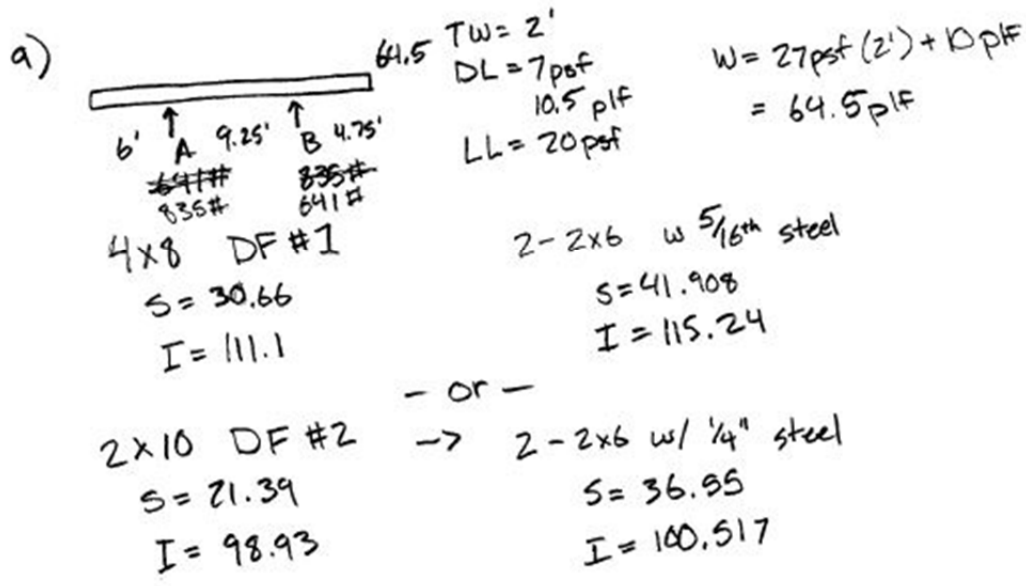 a)
64.5
TW = 2'
DL = 7psf
10.5 plf
LL = 20psf
W = 27psf (2') + 10 plf
= 64.5plf
6' A 9.25' B 4.75'
641# 835#
835# 641#
4x8 DF #1
S = 30.66
I = 111.1
2-2x6 w 5/16th steel
S = 41.908
I = 115.24
- or -
2x10 DF #2 -> 2-2x6 w/ 1/4" steel
S = 21.39
I = 98.93
S = 36.55
I = 100.517